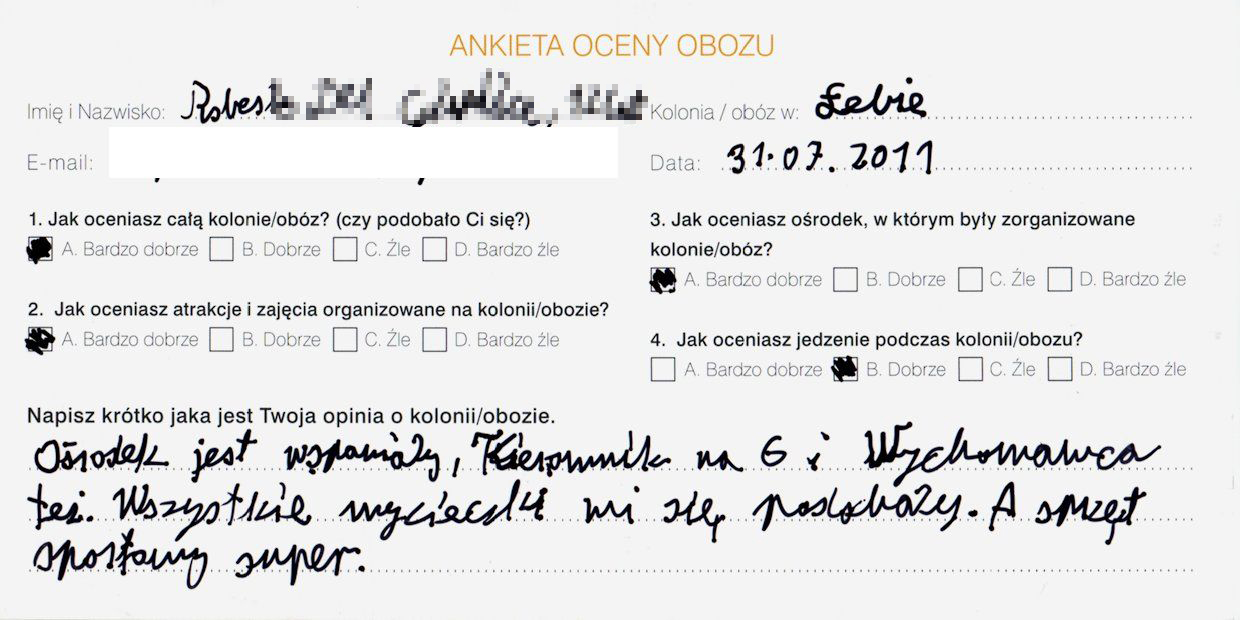 ANKIETA OCENY OBOZU
Imię i Nazwisko:
Kolonia / obóz w: Łebie
E-mail:
Data: 31.07.2011
1. Jak oceniasz całą kolonie/obóz? (czy podobało Ci się?)
A. Bardzo dobrze B. Dobrze C. Źle D. Bardzo źle
2. Jak oceniasz atrakcje i zajęcia organizowane na kolonii/obozie?
A. Bardzo dobrze B. Dobrze C. Źle D. Bardzo źle
3. Jak oceniasz ośrodek, w którym były zorganizowane
kolonie/obóz?
A. Bardzo dobrze B. Dobrze C. Źle D. Bardzo źle
4. Jak oceniasz jedzenie podczas kolonii/obozu?
A. Bardzo dobrze B. Dobrze C. Źle D. Bardzo źle
Napisz krótko jaka jest Twoja opinia o kolonii/obozie.
Ośrodek jest wspaniały, Kierownik na 6 i Wychowawca
też. Wszystkie wycieczki mi się podobały. A sprzęt
sportowy super.